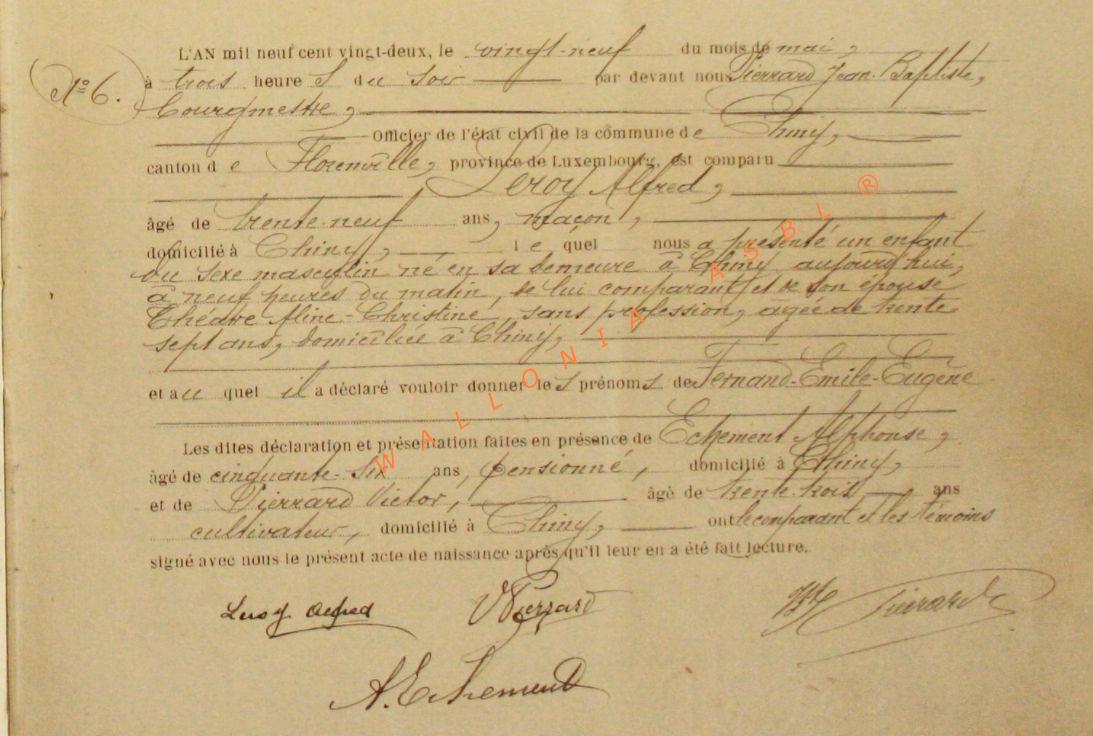 L'AN mil neuf cent vingt-deux, le vingt-neuf du mois de mai,
N° 6. à trois heure s du soir par devant nous Pierrard Jean-Baptiste,
bourgmestre,
Officier de l'état civil de la commune de Chiny,
canton d e Florenville, province de Luxembourg, est comparu
Leroy Alfred,
âgé de trente-neuf ans, maçon,
domicilié à Chiny, le quel nous a présenté un enfant
du sexe masculin né en sa demeure à Chiny aujourd'hui,
à neuf heures du matin, de lui comparant et de son épouse
Théâtre Aline-Christine, sans profession, âgée de trente
sept ans, domiciliée à Chiny,
et au quel il a déclaré vouloir donner les prénoms de Fernand-Emile-Eugène
Les dites déclaration et présentation faites en présence de Echement Alphonse,
âgé de cinquante-six ans, pensionné, domicilié à Chiny,
et de Pierrard Victor, âgé de trente-trois, ans
cultivateur, domicilié à Chiny, ont le comparant et les témoins
signé avec nous le présent acte de naissance après qu'il leur en a été fait lecture.
Leroy Alfred V Pierrard Pierrard
A. Echement
WALLONIA ASBL ®